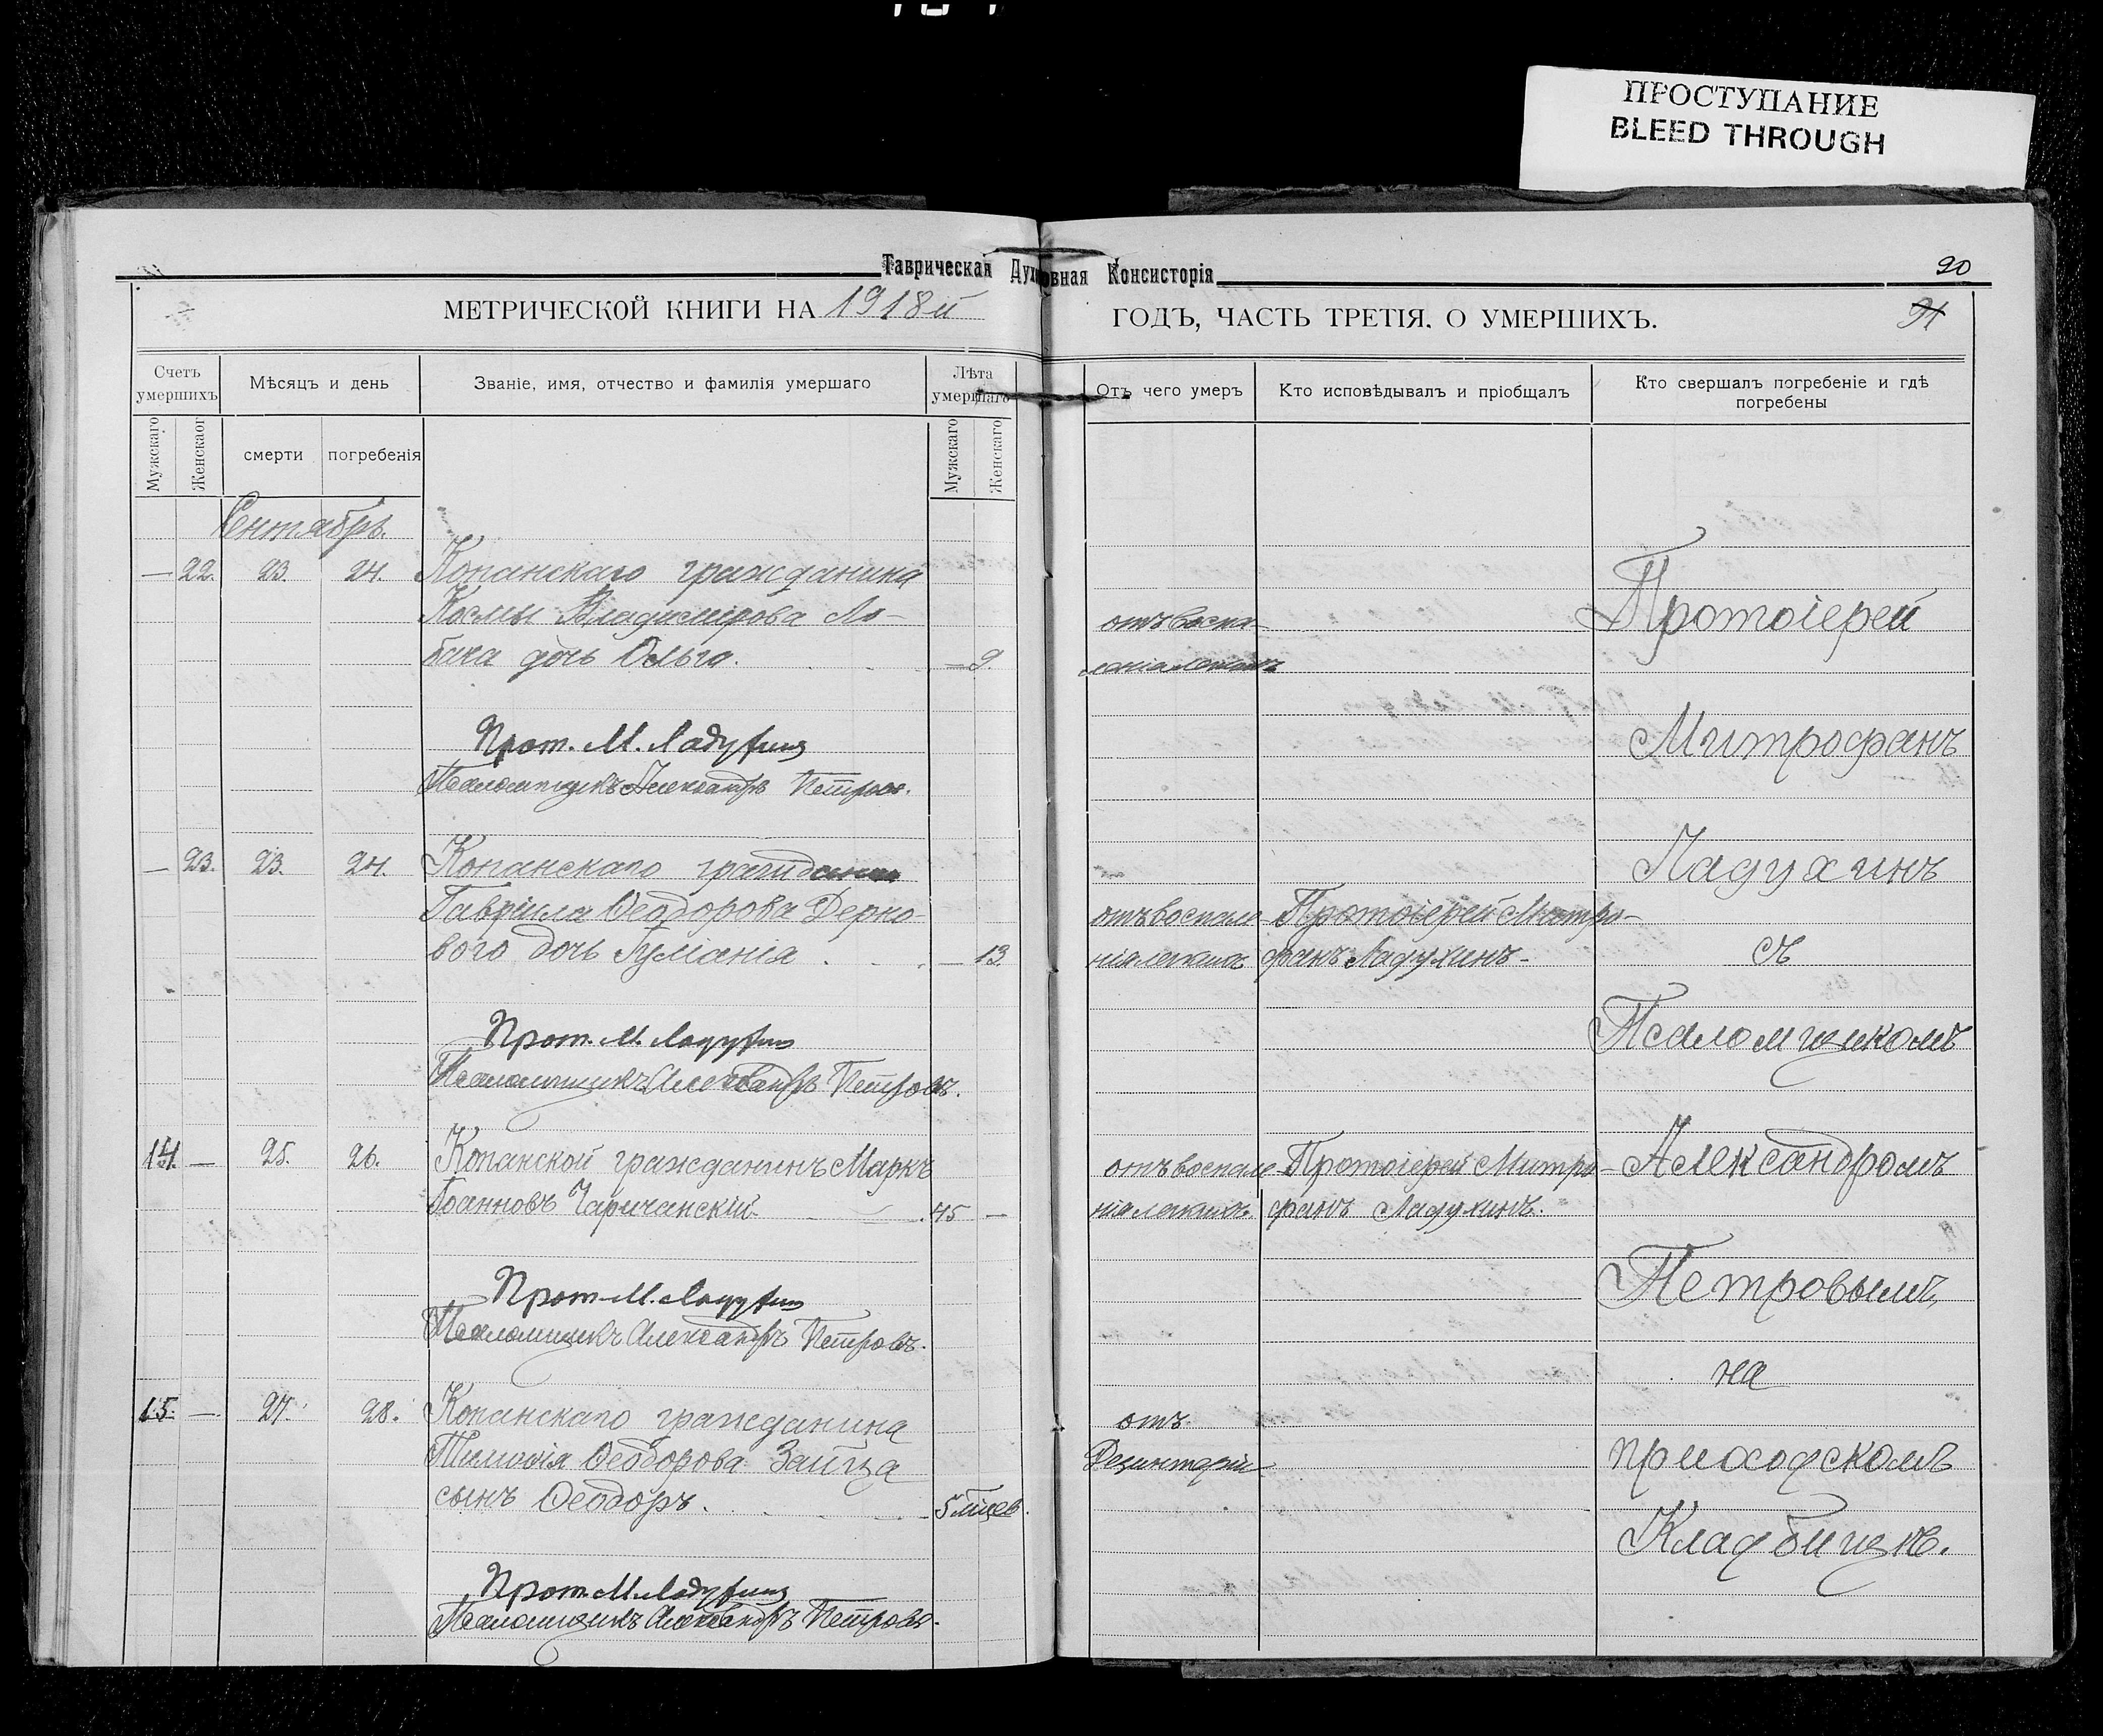 ПРОСТУПАНИЕ
BLEED THROUGH
Таврическая Духовная Консисторія
20
МЕТРИЧЕСКОЙ КНИГИ НА 1918й
ГОДЪ, ЧАСТЬ ТРЕТІЯ. О УМЕРШИХЪ.
21
Счетъ умершихъ
Мѣсяцъ и день
Званіе, имя, отчество и фамилія умершаго
Лѣта умершаго
Отъ чего умеръ
Кто исповѣдывалъ и пріобщалъ
Кто свершалъ погребеніе и гдѣ погребены
Мужскаго
Женскаог
смерти
погребенія
Мужскаго
Женскаго
Сентябрь.
— 22. 23. 24. Копанскаго гражданина
Космы Владимірова Ло-
бача дочь Ольга. — 9.
отъ воспа-
ленія легкихъ
Прот. М. Ладухинъ
Псаломщикъ Александръ Петровъ.
— 23. 23. 24. Копанскаго гражданина
Гавріила Ѳеодорова Дерко-
вого дочь Іуліанія . — 13.
отъ воспале-
нія легкихъ
Протоіерей Митро-
фанъ Ладухинъ-
Прот. М. Ладухинъ
Псаломщикъ Александръ Петровъ.
14. — 25. 26. Копанской гражданинъ Маркъ
Іоанновъ Чаричанскій 45 —
отъ воспале-
нія легкихъ.
Протоіерей Митро-
фанъ Ладухинъ.
Прот. М. Ладухинъ
Псаломщикъ Александръ Петровъ.
15. — 27. 28. Копанскаго гражданина
Тимоѳія Ѳеодорова Зайца
сынъ Ѳеодоръ. 5 мѣсяц.
отъ
Дезинтеріи
Прот. М. Ладухинъ
Псаломщикъ Александръ Петровъ.
Протоіерей
Митрофанъ
Ладухинъ
съ
Псаломщикомъ
Александромъ
Петровымъ,
на
приходскомъ
Кладбищѣ.